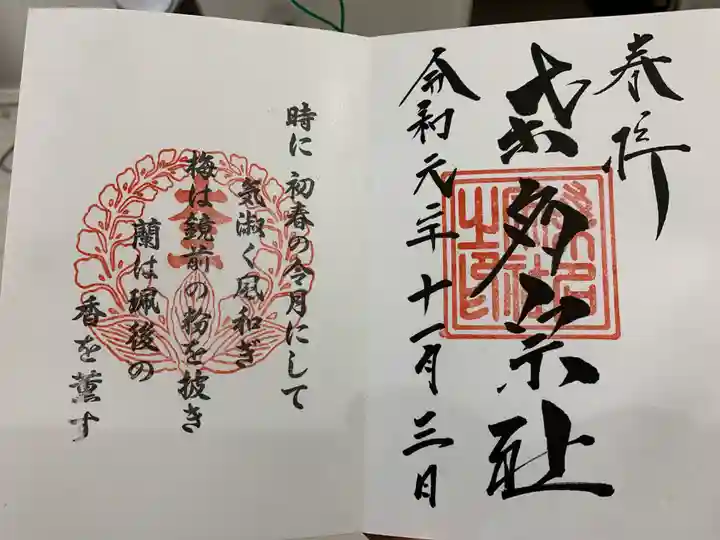 奉拝
令和元年十一月三日
時に初春の令月にして
気淑く風和ぎ
梅は鏡前の粉を披き
蘭は珮後の
香を薫す